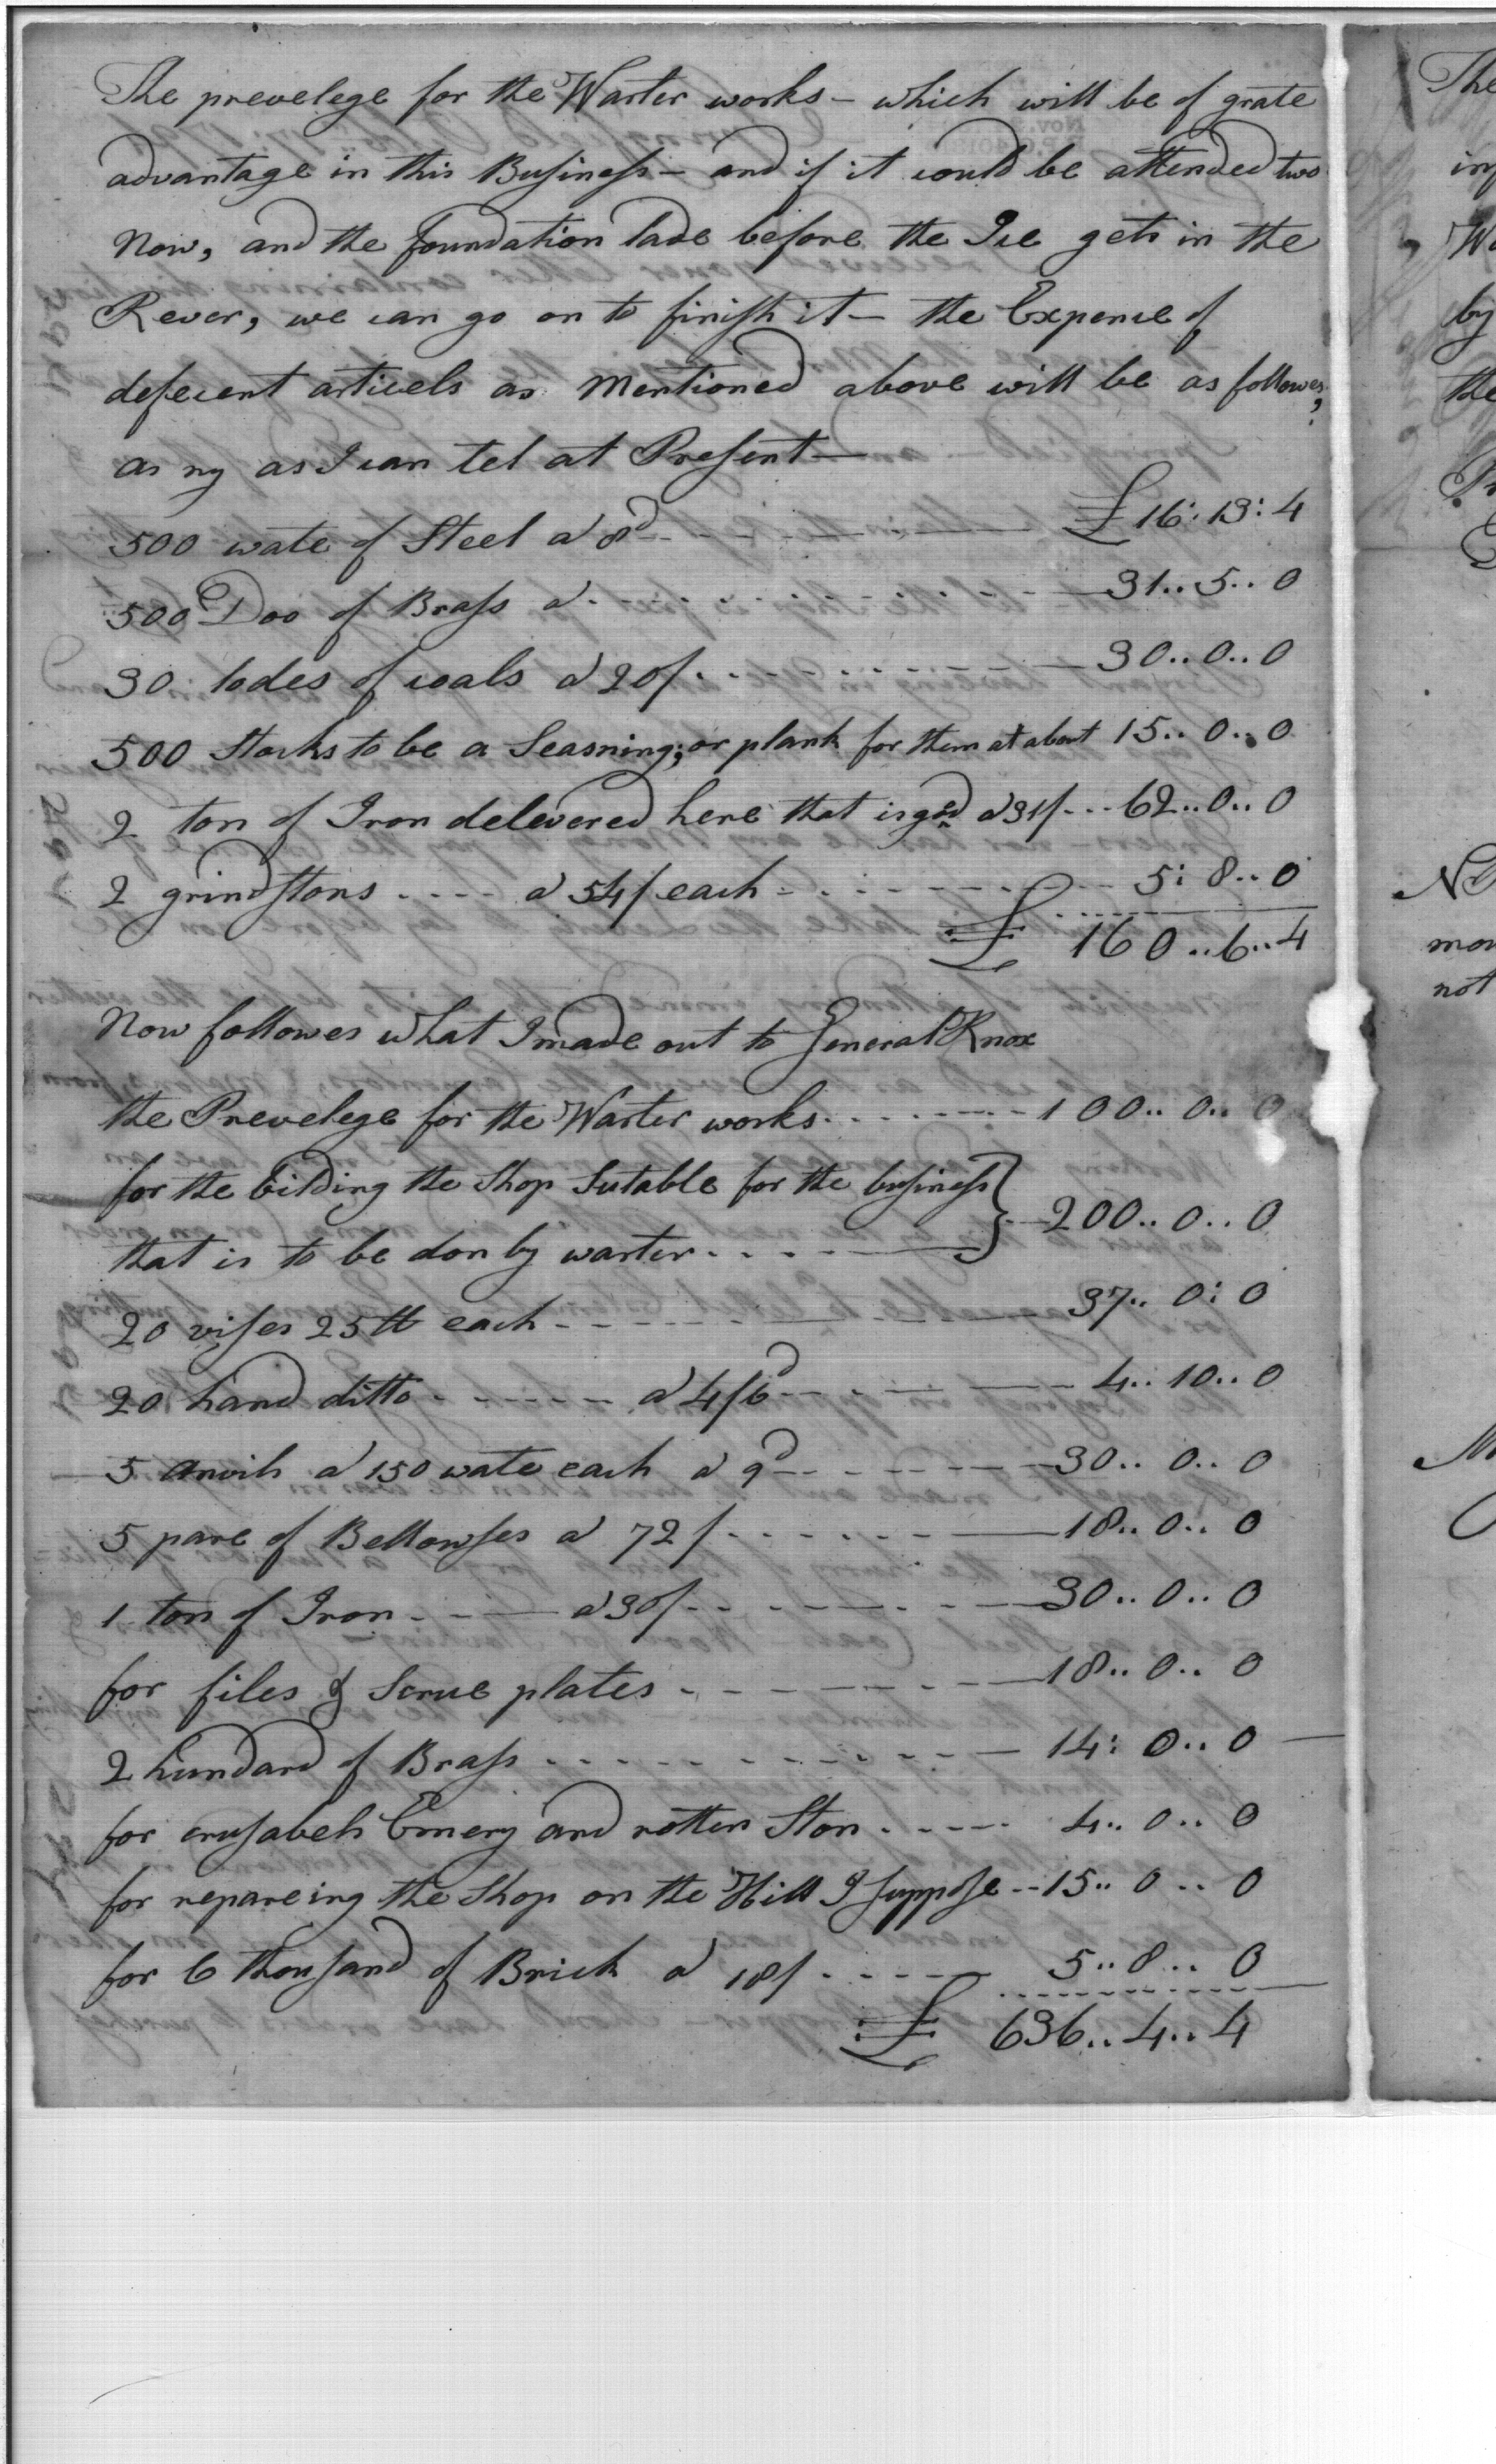 The prevelege for the Warter works – which will be of grate
advantage in this Business – and if it could be attended two
Now, and the foundation lade before the Ice gets in the
Rever, we can go on to finish it – the Expence of
deferent articels as Mentioned above will be as followes,
as ny as I can tel at Present —
500 wate of Steel a 8d - - - £16:13:4
500 Doo of Brass a - - - 31..5..0
30 lodes of coals a 20/ - - - 30..0..0
500 Stocks to be a Seasning; or plank for them at about 15..0..0
2 ton of Iron delevered here that is good a 31/ - - - 62..0..0
2 grindstons - - - - a 54/ each - - - 5:8..0
£ 160..6..4
Now followes what I made out to General Knox
the Prevelege for the Warter works - - - 100..0..0
for the bilding the Shop Sutable for the business
that is to be don by warter - - - } 200..0..0
20 vises 25 ℔ each - - - 37..0:0
20 hand ditto - - - a 4/6d - - - 4..10..0
5 Anvils a 150 wate each a 9d - - - 30..0..0
5 pare of Bellowses a 72/ - - - 18..0..0
1 ton of Iron - - - a 30/ - - - 30..0..0
for files & Scrue plates - - - 18..0..0
2 hundard of Brass - - - 14:0..0
for crusabels Emery and rotten Ston - - - 4..0..0
for repareing the Shop on the Hill I suppose - - 15..0..0
for 6 thousand of Brick a 18/ - - - 5..8..0
£ 636..4..4
The
by
the
not